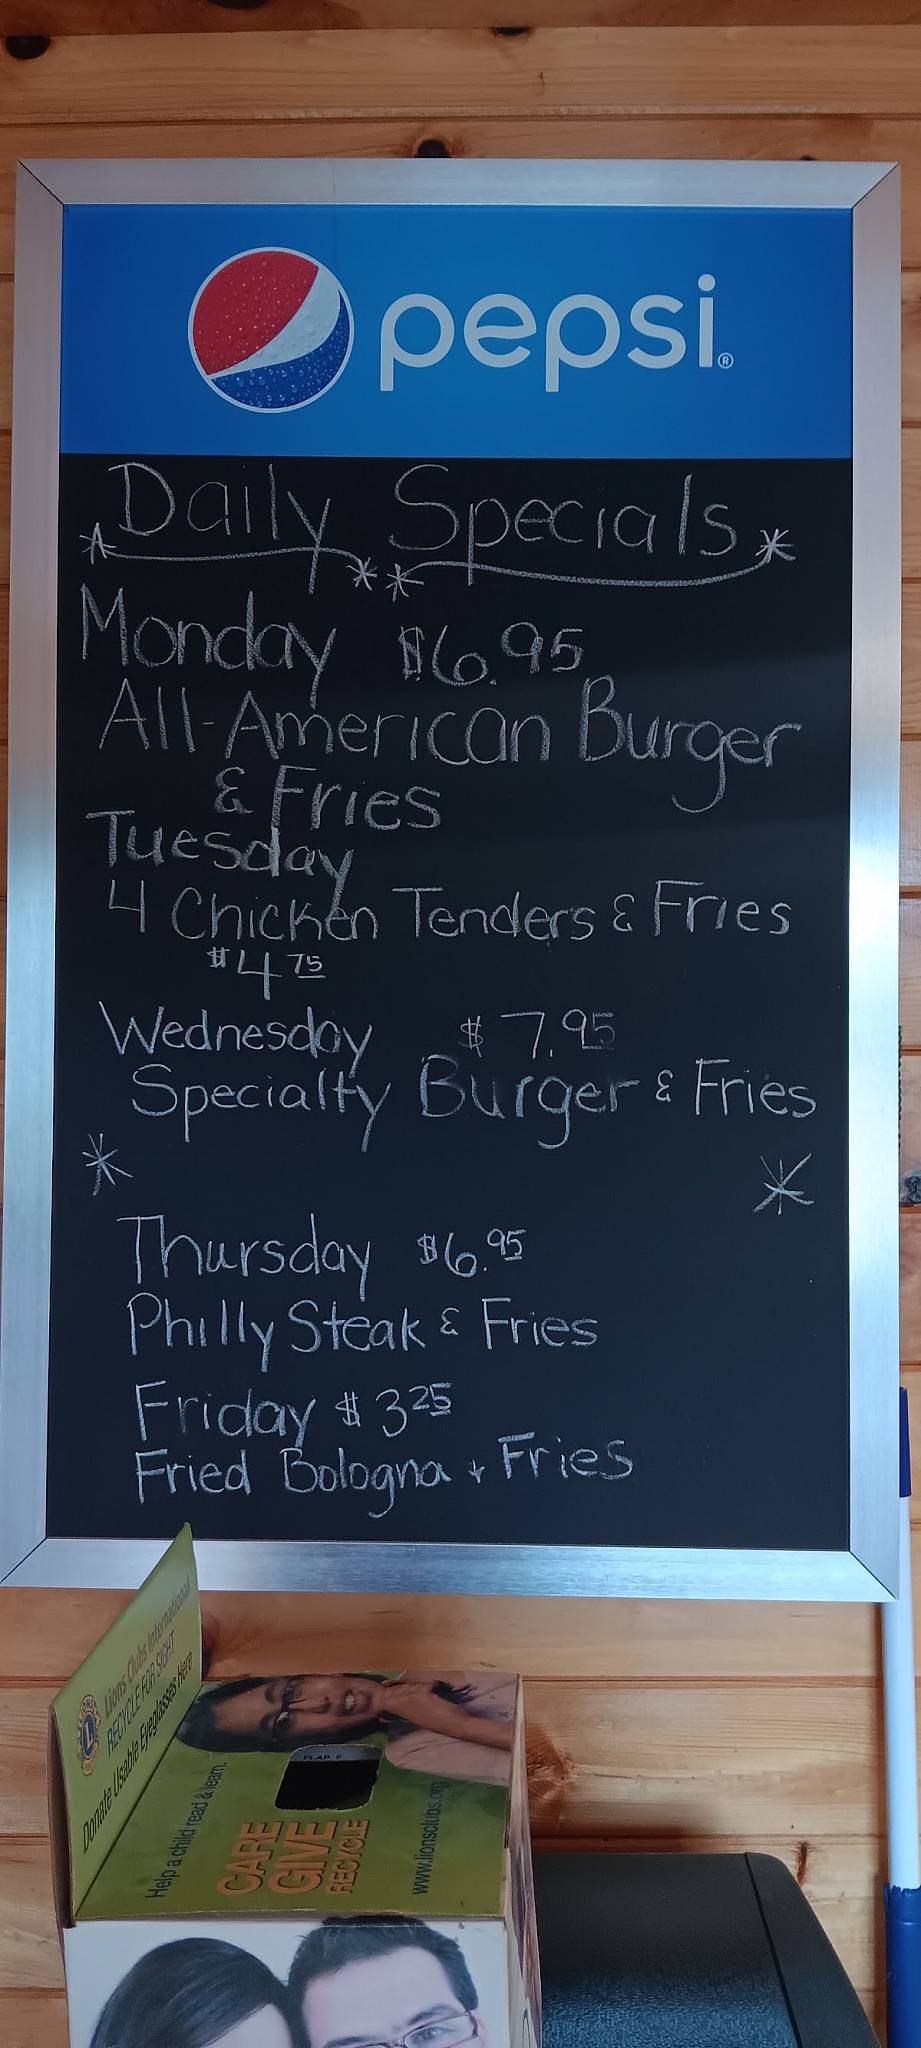 pepsi®
Daily Specials
Monday $6.95
All-American Burger
& Fries
Tuesday
4 Chicken Tenders & Fries
$4 75
Wednesday $7.95
Specialty Burger & Fries
Thursday $6.95
Philly Steak & Fries
Friday $3 25
Fried Bologna + Fries
Lions Clubs International
RECYCLE FOR SIGHT
Donate Usable Eyeglasses Here
LIONS
L
Help a child read & learn.
CARE
GIVE
RECYCLE
FLAP F
www.lionsclubs.org